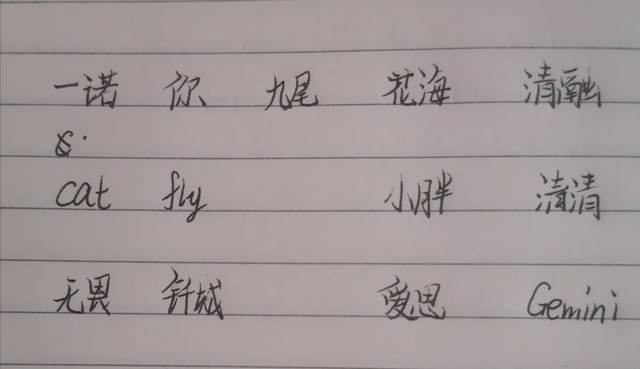 一诺 你 九尾 花海 清融
cat fly 小胖 清清
无畏 钎城 爱思 Gemini